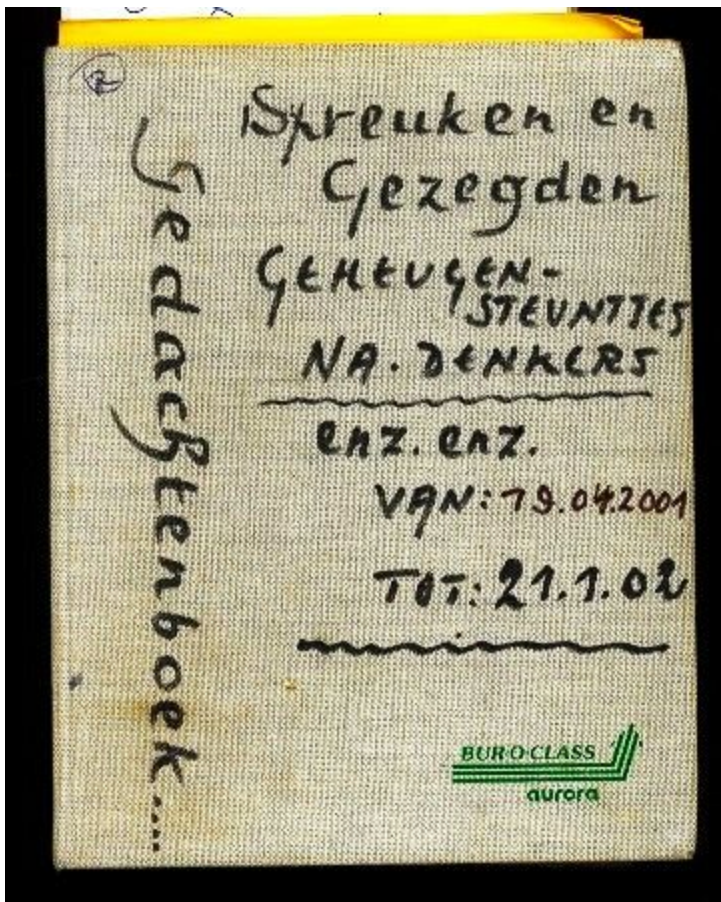 2
Gedachtenboek.....
Spreuken en
Gezegden
GEHEUGEN-
STEUNTJES
NA. DENKERS
enz. enz.
VAN: 19.04.2001
TOT: 21.1.02
BURO-CLASS
aurora